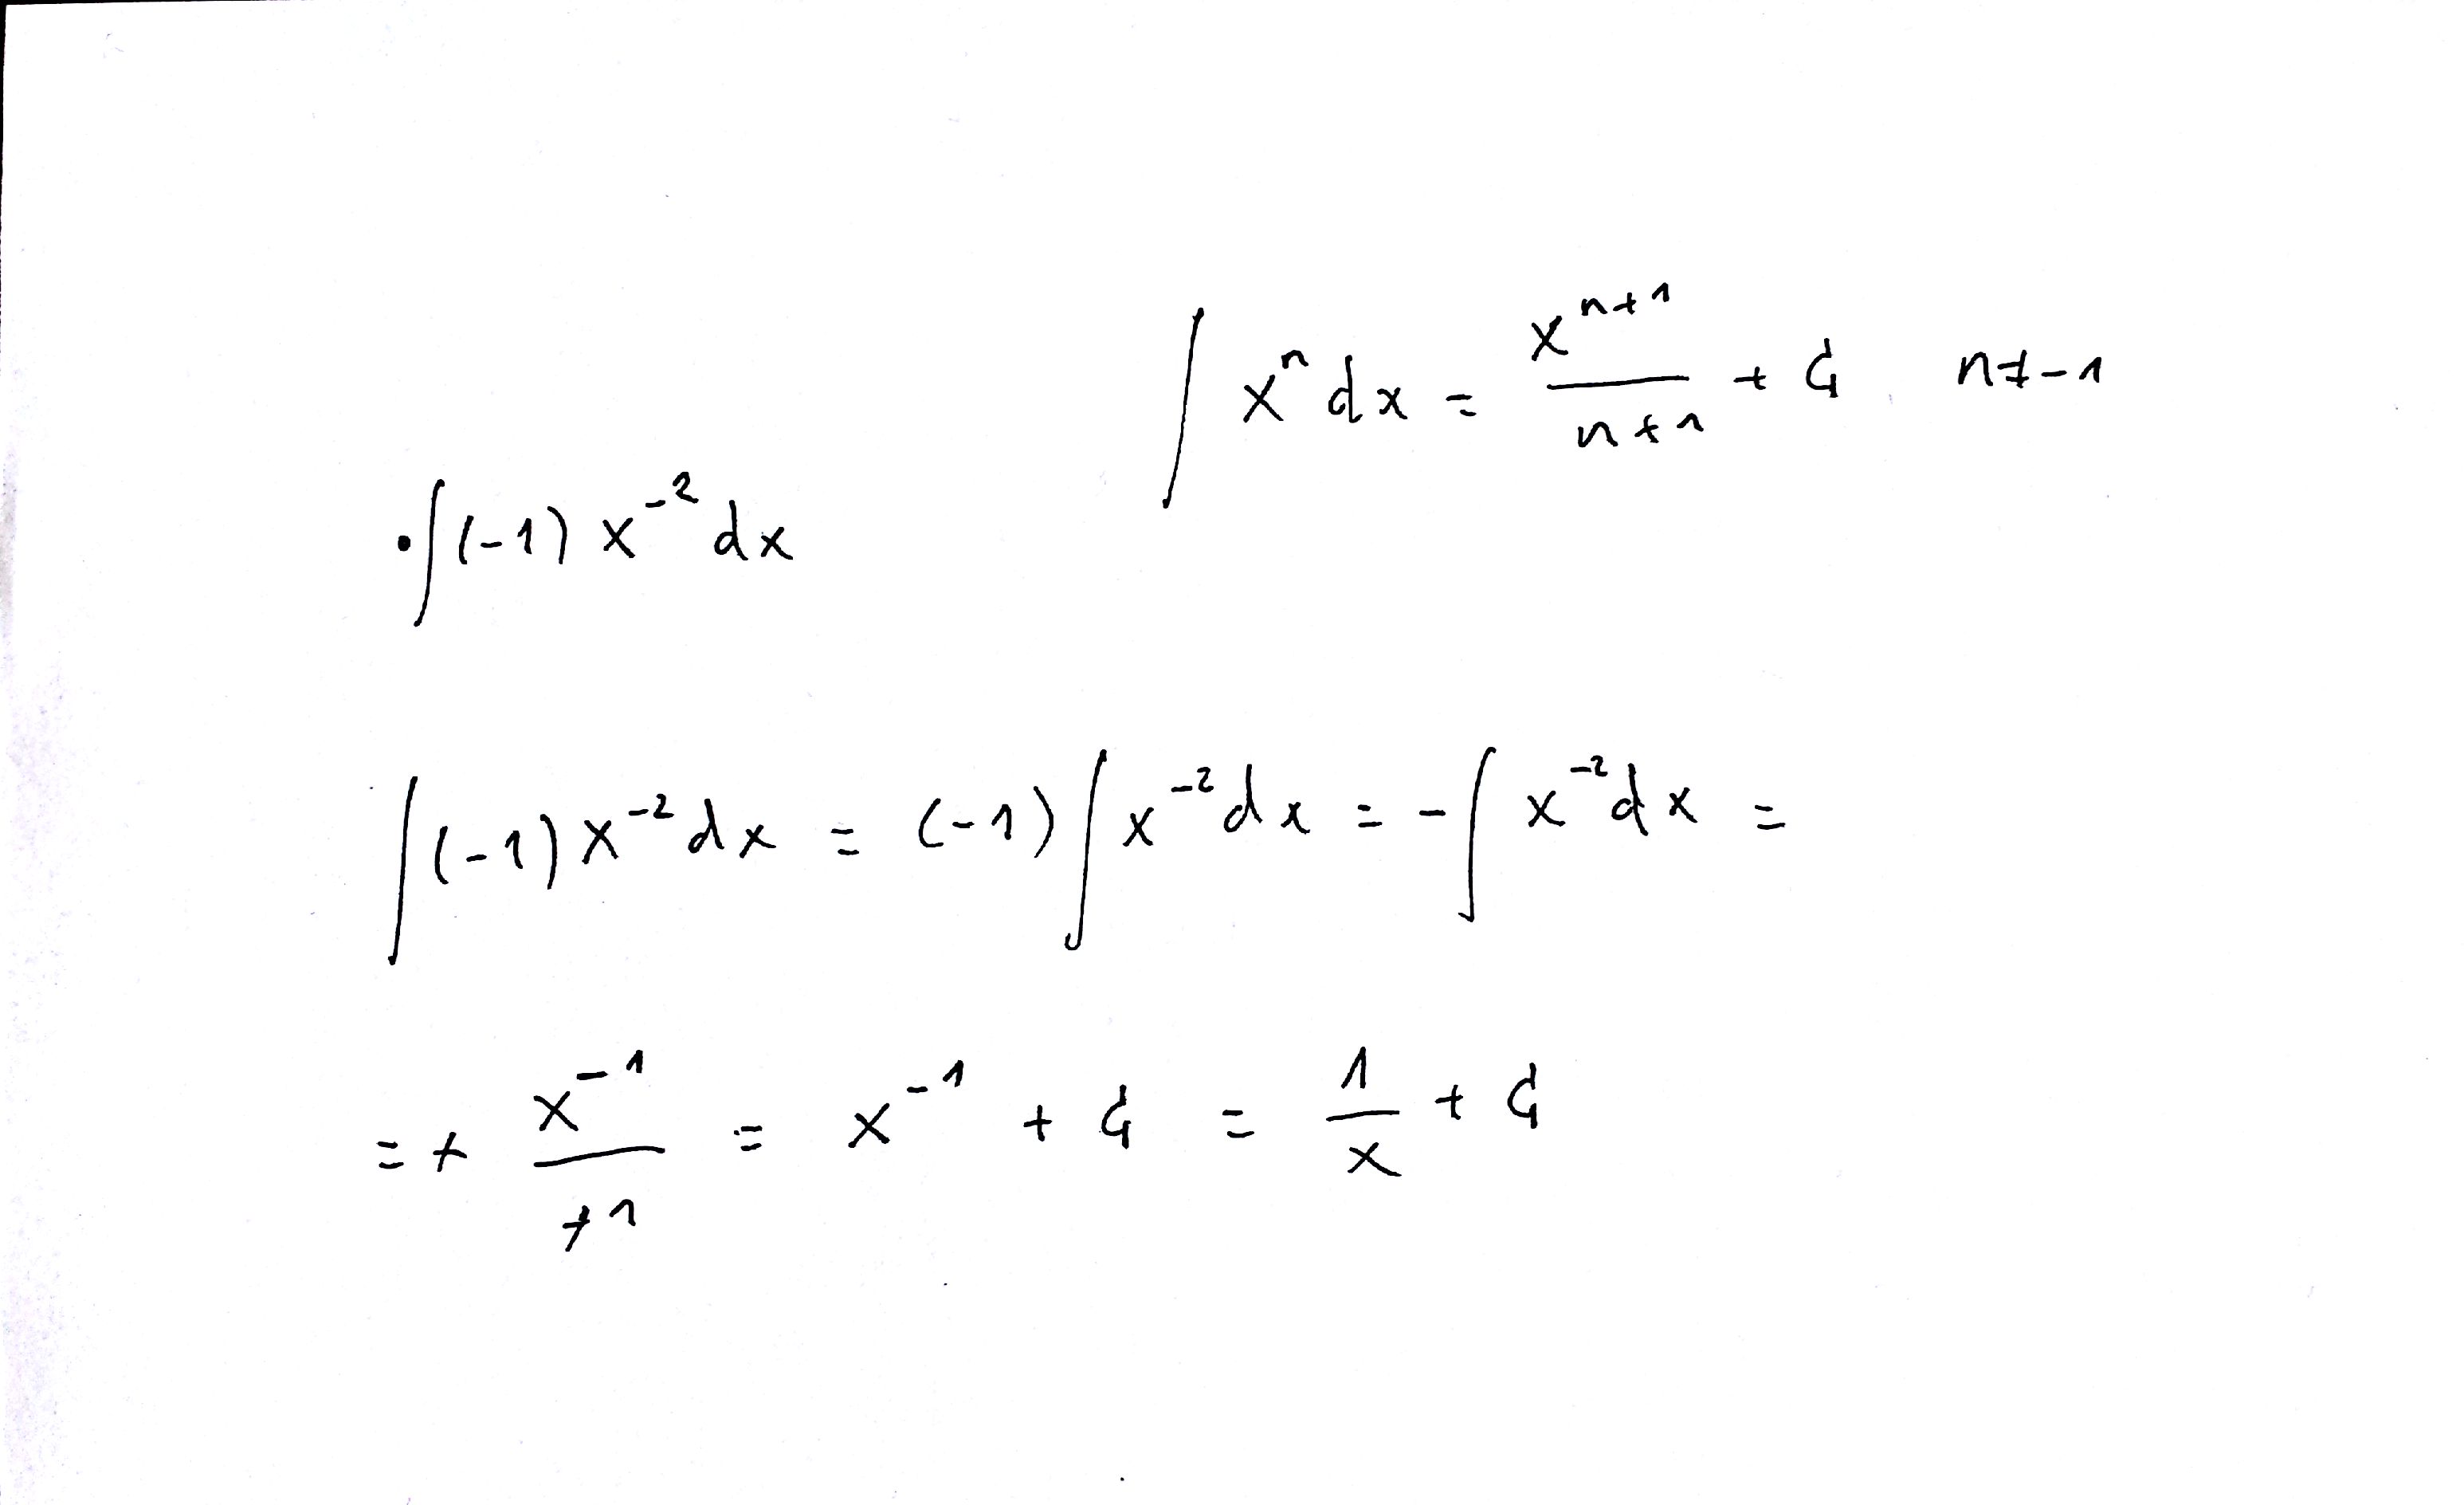 ∫ xⁿ dx = xⁿ⁺¹ / (n+1) + C, n ≠ -1
• ∫ (-1) x⁻² dx
∫ (-1) x⁻² dx = (-1) ∫ x⁻² dx = - ∫ x⁻² dx =
= + x⁻¹ / +1 = x⁻¹ + C = 1/x + C